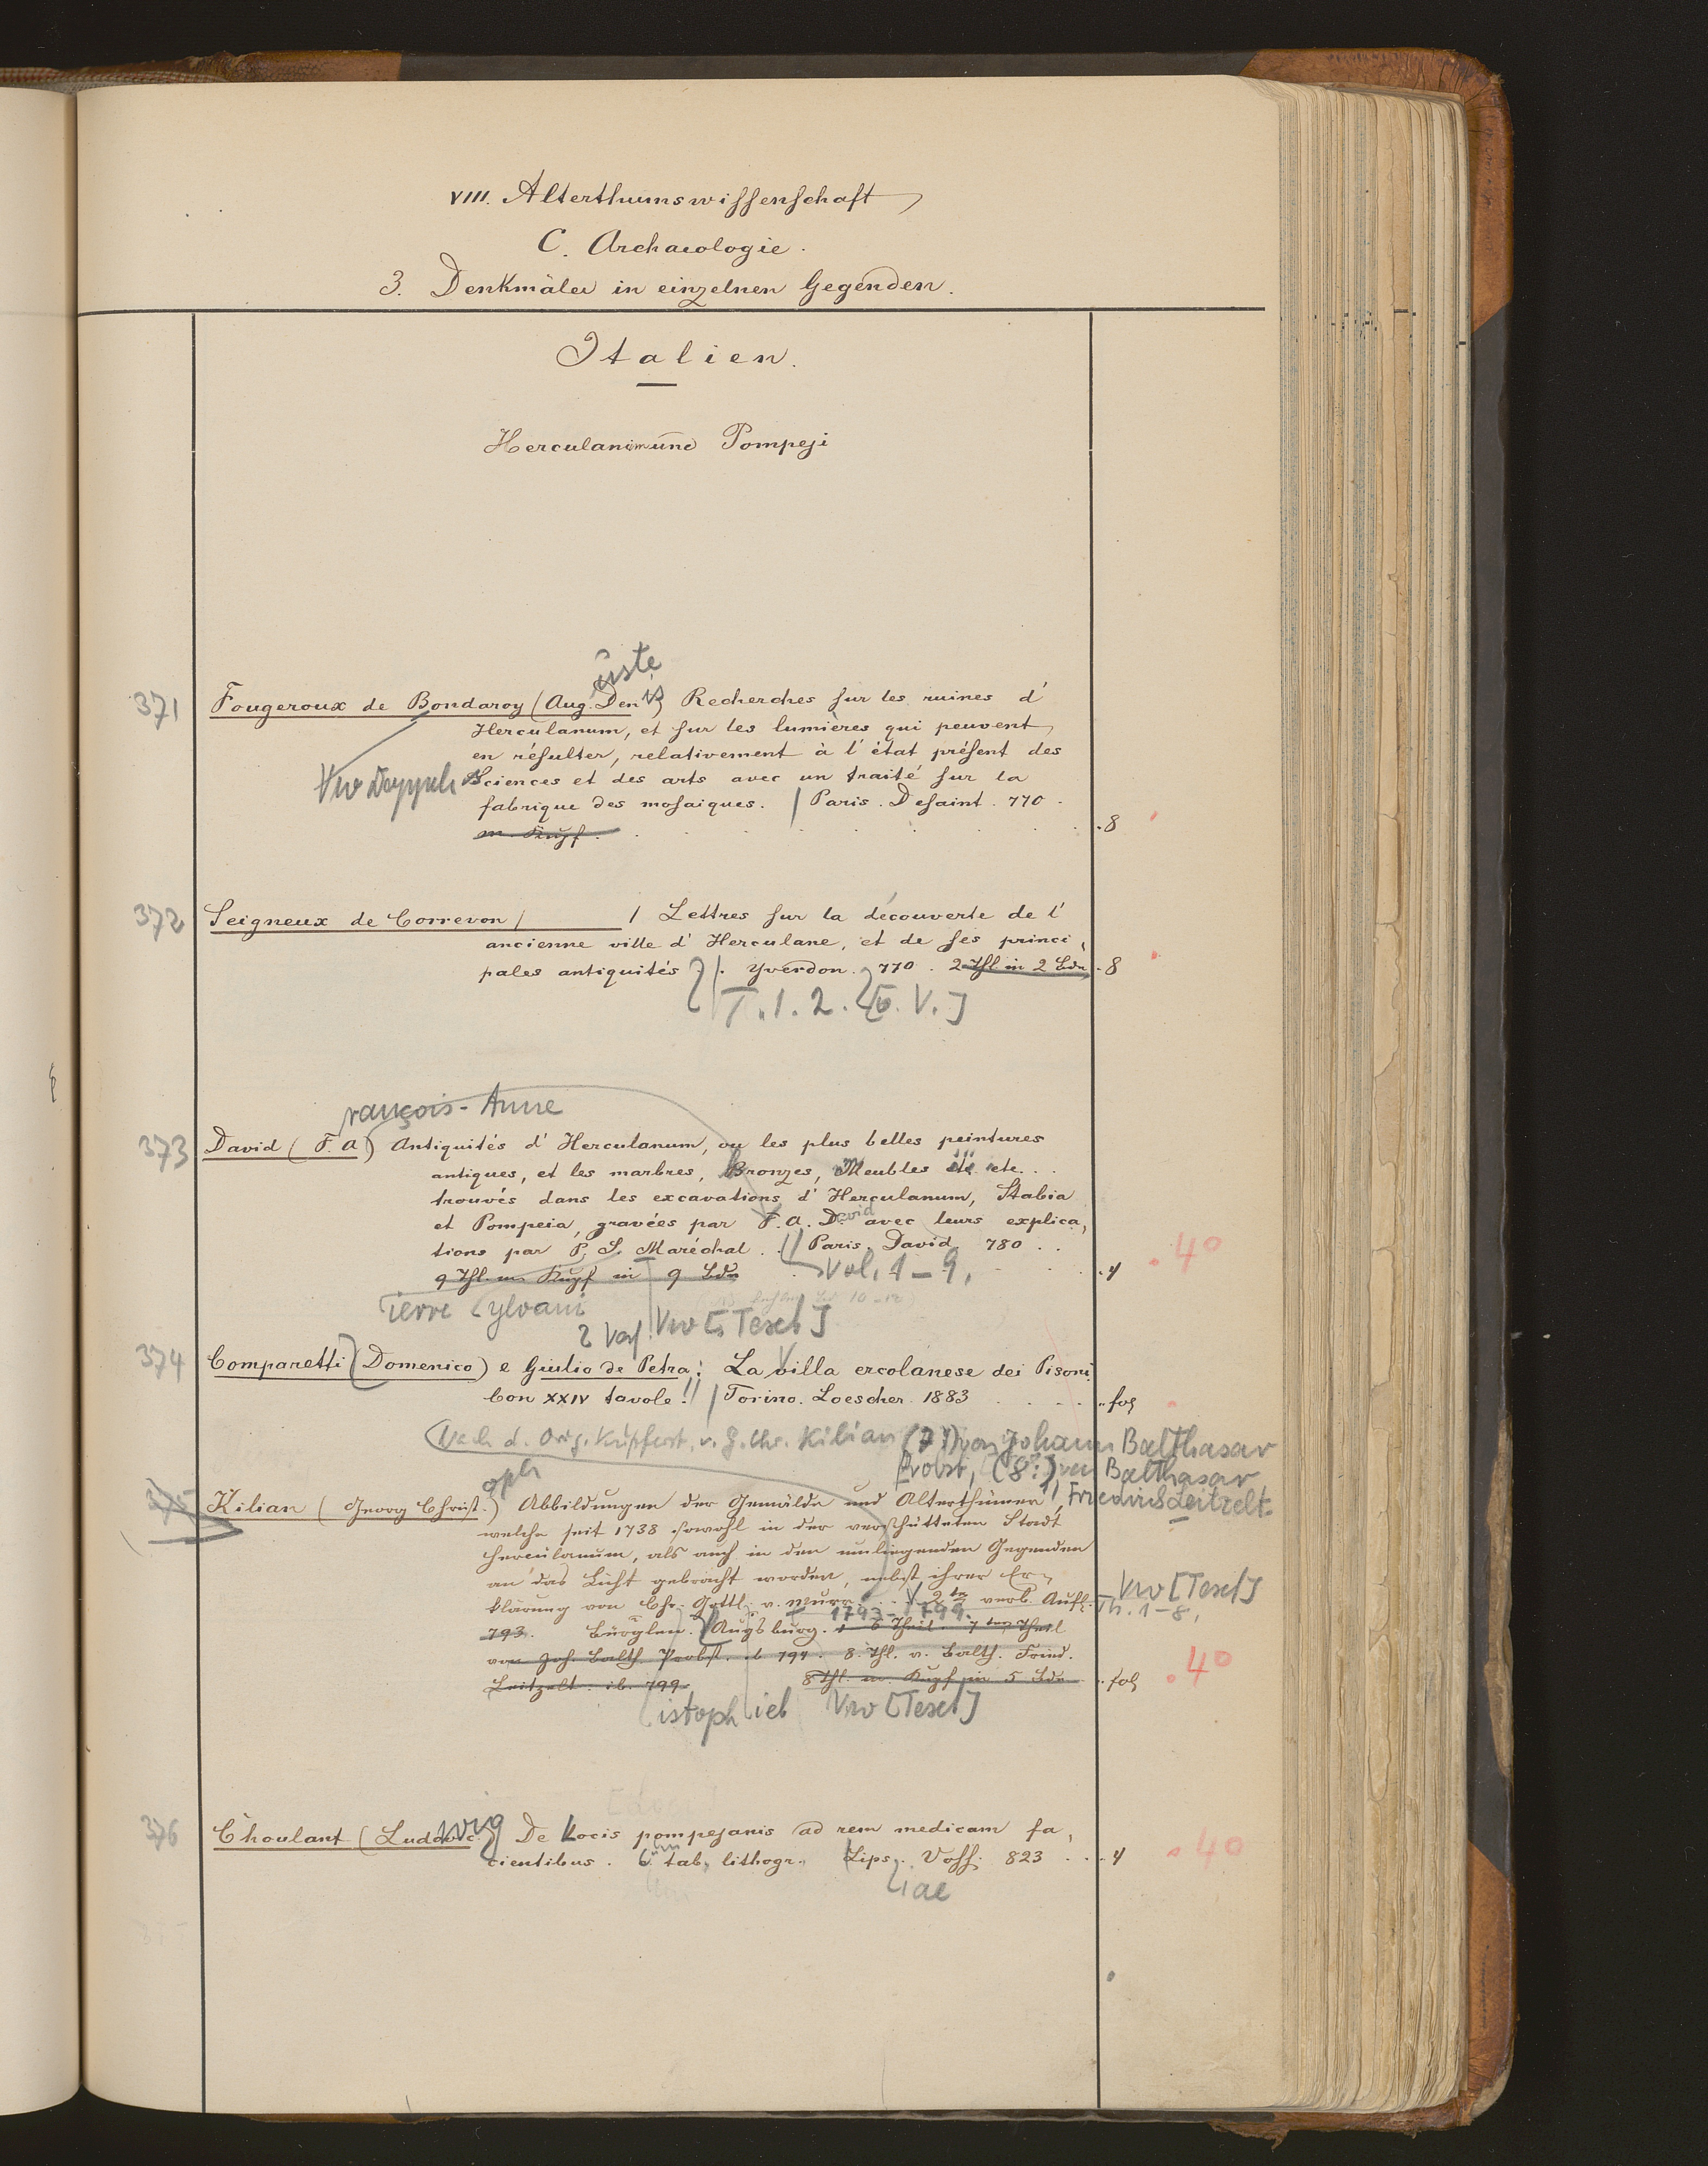 VIII. Alterthumswissenschaft
C. Archaeologie.
3. Denkmäler in einzelnen Gegenden.
Italien.
Herculanum und Pompeji
uste
371 Fougeroux de Bondaroy (Aug. Denis) Recherches sur les ruines d'
Herculanum, et sur les lumières qui peuvent
en résulter, relativement à l'état présent des
Vw Doppels Sciences et des arts avec un traité sur la
fabrique des mosaiques. / Paris. Desaint. 770.
m. Kupf. . 8
372 Seigneux de Correvon / / Lettres sur la découverte de l'
ancienne ville d'Herculane, et de ses princi,
pales antiquités. Yverdon. 770. 2 Thl in 2 Bdn. 8
T. 1. 2. V.]
rançois-Anne
373 David (F. A) Antiquités d'Herculanum, ou les plus belles peintures
antiques, et les marbres, Bronzes, Meubles etc. etc...
trouvés dans les excavations d'Herculanum, Stabia
et Pompeia, gravées par F. A. David avec leurs explica,
tions par P. S. Maréchal. // Paris. David 780 . . 4°
9 Thl. m. Kupf in 9 Bdn Vol. 1-9. 4
ierre ylvain
2 Verf. Vw [Text]
374 Comparetti (Domenico) e Giulio de Petra: La villa ercolanese dei Pisoni.
Con XXIV tavole. // Torino. Loescher. 1883 . . . . fol
Nach d. Orig. Kupferst. v. G. Chr. Kilian (7:) von Johann Balthasar
Probst, (8:) von Balthasar
oph Friedrich Leitzelt.
375 Kilian (Georg Christ.) Abbildungen der Gemälde und Alterthümer,
welche seit 1738 sowohl in der verschütteten Stadt
Herculanum, als auch in den umliegenden Gegenden
an das Licht gebracht worden, nebst ihrer Er-
klärung von Chr. Gottl. v. Murr. . . 2te verb. Aufl. Vw [Text]
Th. 1-8,
1793-1799.
793. Augsburg. 1-6 Theil. 7ter Theil
von Joh. Balth. Probst. ib 794. 8. Thl. v. Balth. Fried.
Leitzelt. ib. 799. 8 Thl. m. Kupf in 5 Bdn . . fol 4°
istoph lieb Vw [Text]
376 Choulant (Ludwig) De Locis pompejanis ad rem medicam fa,
cientibus. tab. lithogr. Lips. Voss. 823 . . . 4 4°
iae